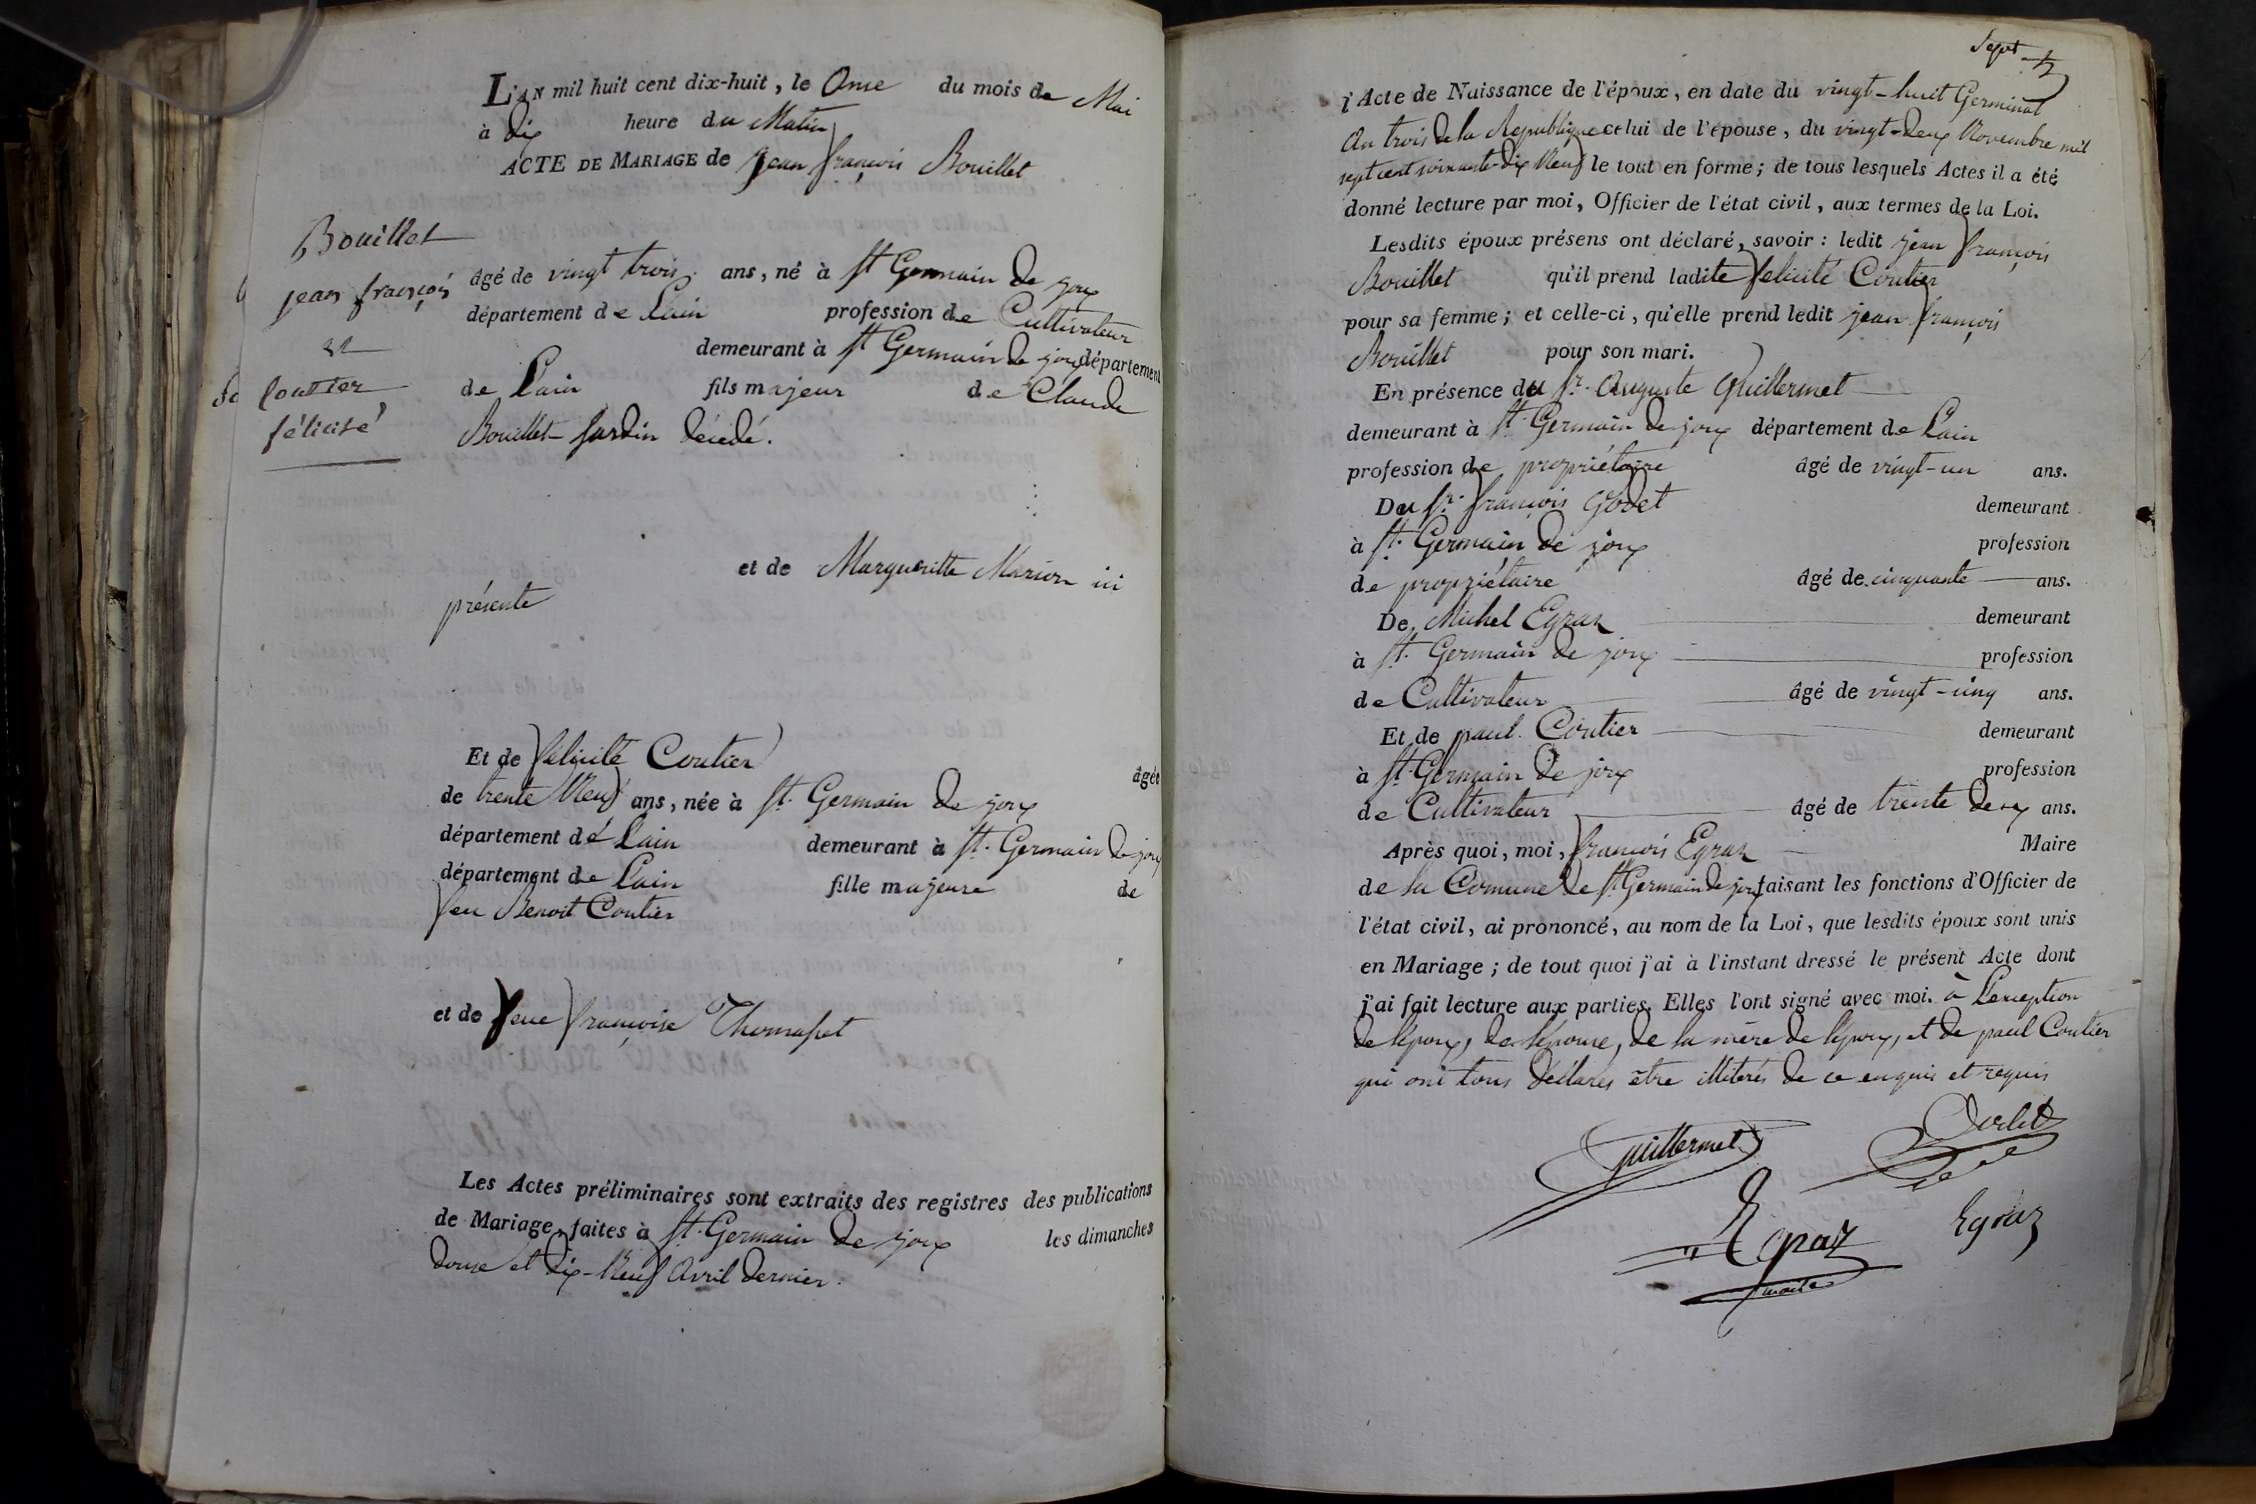 L'AN mil huit cent dix-huit, le Onse du mois de Mai
à dix heure du Matin
ACTE DE MARIAGE de jean françois Bouillet
Bouillet
jean françois
et
Coutier
félicité
âgé de vingt trois ans, né à St Germain de joux
département de Lain profession de Cultivateur
demeurant à St Germain de joux département
de Lain fils majeur de Claude
Bouillet Jardin décédé.
et de Margueritte Marion ici
présente
Et de félicité Coutier âgée
de trente Neuf ans, née à St. Germain de joux
département de Lain demeurant à St. Germain de joux
département de Lain fille majeure de
feu Benoit Coutier
et de feue françoise Thomasset
Les Actes préliminaires sont extraits des registres des publications
de Mariage faites à St. Germain de joux les dimanches
douse et dix-Neuf Avril dernier.
Sept
l'Acte de Naissance de l'époux, en date du vingt-huit Germinal
An trois de la Republique celui de l'épouse, du vingt-deux Novembre mil
sept cent soixante-dix Neuf le tout en forme; de tous lesquels Actes il a été
donné lecture par moi, Officier de l'état civil, aux termes de la Loi.
Lesdits époux présens ont déclaré, savoir : ledit jean françois
Bouillet qu'il prend ladite félicité Coutier
pour sa femme; et celle-ci, qu'elle prend ledit jean françois
Bouillet pour son mari.
En présence du Sr. Auguste Guillermet
demeurant à St. Germain de joux département de Lain
profession de propriétaire âgé de vingt-un ans.
Du Sr. françois Godet demeurant
à St. Germain de joux profession
de propriétaire âgé de cinquante ans.
De Michel Egraz demeurant
à St. Germain de joux profession
de Cultivateur âgé de vingt-cinq ans.
Et de paul Coutier demeurant
à St. Germain de joux profession
de Cultivateur âgé de trente deux ans.
Après quoi, moi, françois Egraz Maire
de la Comune de St. Germain de joux faisant les fonctions d'Officier de
l'état civil, ai prononcé, au nom de la Loi, que lesdits époux sont unis
en Mariage ; de tout quoi j'ai à l'instant dressé le présent Acte dont
j'ai fait lecture aux parties. Elles l'ont signé avec moi. à Lexception
de lépoux, de lépouse, de la mère de lépoux, et de paul Coutier
qui ont tous déclarés être illiterés de ce enquis et requis
Guillermet
Egraz Egraz
maire